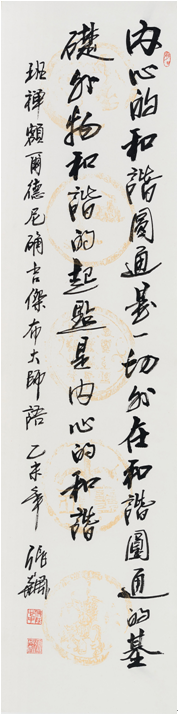 内心的和諧圓通是一切外在和諧圓通的基
礎外物和諧的起點是内心的和諧
班禅額爾德尼确吉傑布大師語 乙未年 張